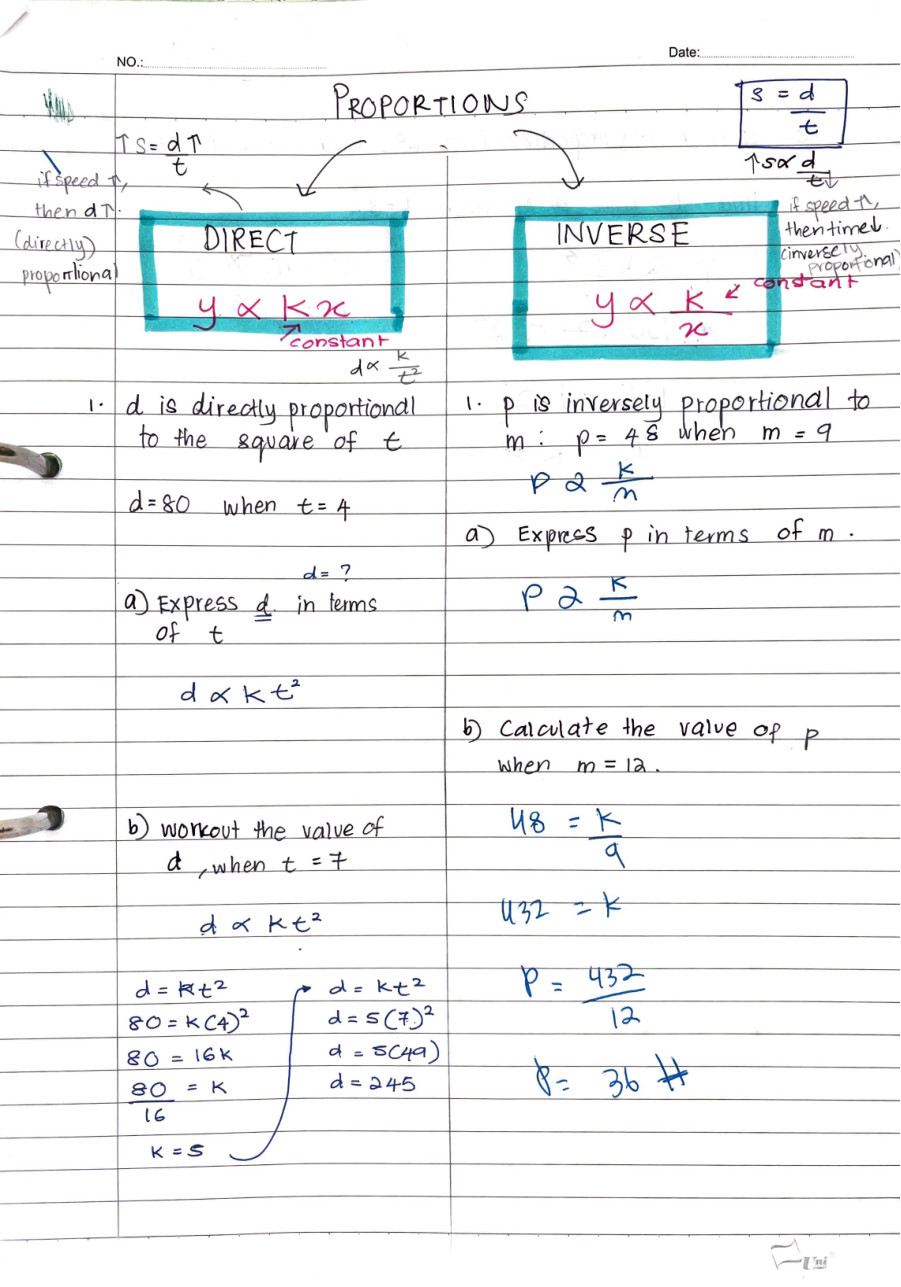 NO.:
Date:
PROPORTIONS
s = d/t
↑ s = d↑/t
↑ s ∝ d/t↓
if speed ↑,
then d ↑.
(directly)
proportional
if speed ↑,
then time↓.
(inversely
proportional)
DIRECT
y ∝ kx
constant
INVERSE
y ∝ k/x
constant
d ∝ k/t²
1. d is directly proportional
to the square of t
d = 80 when t = 4
d = ?
a) Express d in terms
of t
d ∝ kt²
b) workout the value of
d, when t = 7
d ∝ kt²
d = kt²
80 = k(4)²
80 = 16k
80/16 = k
k = 5
d = kt²
d = 5(7)²
d = 5(49)
d = 245
1. p is inversely proportional to
m : p = 48 when m = 9
p ∝ k/m
a) Express p in terms of m.
p ∝ k/m
b) Calculate the value of p
when m = 12.
48 = k/9
432 = k
p = 432/12
p = 36
Uni